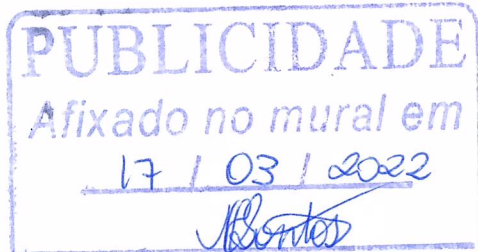 PUBLICIDADE
Afixado no mural em
17 / 03 / 2022